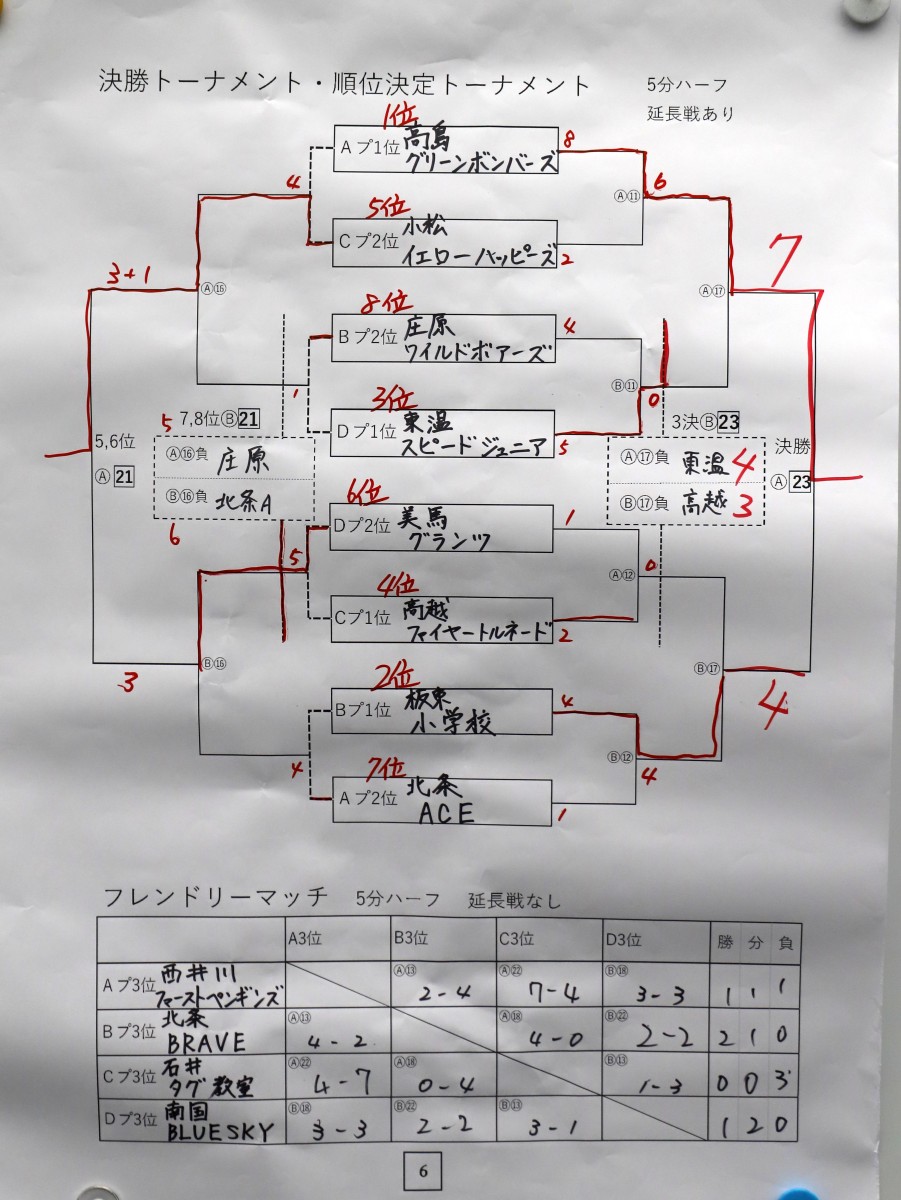 決勝トーナメント・順位決定トーナメント 5分ハーフ
延長戦あり
1位
Aプ1位 高島
グリーンボンバーズ 8
4 6
Ⓐ⑪
5位
Cプ2位 小松
イエローハッピーズ 2
3+1 7
Ⓐ⑯ Ⓐ⑰
8位
Bプ2位 庄原
ワイルドボアーズ 4
1 Ⓑ⑪ 0
3位
Dプ1位 東温
スピードジュニア 5
5 7,8位Ⓑ21 3決Ⓑ23
5,6位 決勝
Ⓐ⑯負 庄原 Ⓐ⑰負 東温 4
Ⓐ21 Ⓐ23
Ⓑ⑯負 北条A Ⓑ⑰負 高越 3
6
6位
Dプ2位 美馬
グランツ 1
5 Ⓐ⑫ 0
4位
Cプ1位 高越
ファイヤートルネード 2
3 Ⓑ⑯ Ⓑ⑰ 4
2位
Bプ1位 板東
小学校 4
4 Ⓑ⑫ 4
7位
Aプ2位 北条
ACE 1
フレンドリーマッチ 5分ハーフ 延長戦なし
A3位 B3位 C3位 D3位 勝 分 負
Aプ3位 西井川
ファーストペンギンズ Ⓐ⑬ 2-4 Ⓐ㉒ 7-4 Ⓑ⑱ 3-3 1 1 1
Bプ3位 北条
BRAVE Ⓐ⑬ 4-2 Ⓐ⑱ 4-0 Ⓑ㉒ 2-2 2 1 0
Cプ3位 石井
タグ教室 Ⓐ㉒ 4-7 Ⓐ⑱ 0-4 Ⓑ⑬ 1-3 0 0 3
Dプ3位 南国
BLUESKY Ⓑ⑱ 3-3 Ⓑ㉒ 2-2 Ⓑ⑬ 3-1 1 2 0
6